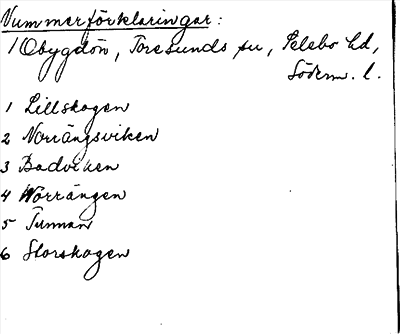 Nummerförklaringar:
1 Obygdön, Toresunds sn, Selebo hd,
Söderm. l.
1 Lillskogen
2 Norrängsviken
3 Badviken
4 Norrängen
5 Tunnan
6 Storskogen